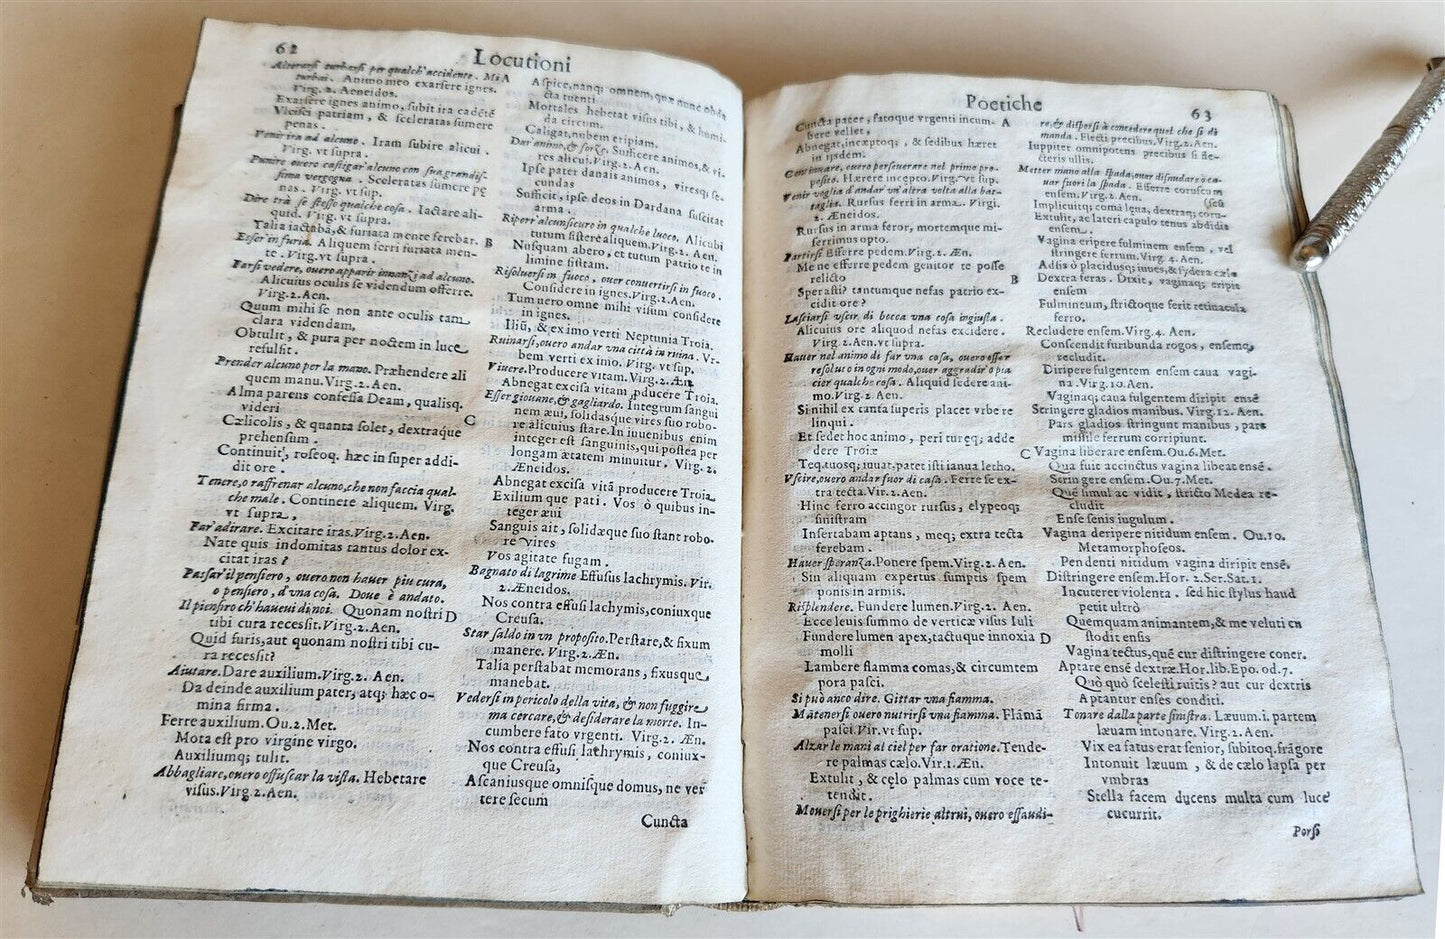 62
Locutioni
Alterarsi turbarsi per qualch'accidente. Mi A
turbai. Animo meo exarsere ignes.
Virg. 2. Aeneidos.
Exarsere ignes animo, subit ira cadẽtẽ
Vlcisci patriam, & sceleratas sumere
penas.
Venir ira ad alcuno. Iram subire alicui.
Virg. vt supra.
Punire ouero castigar alcuno con sua grandis-
sima vergogna. Sceleratas sumere pę
nas. Virg. vt sup.
Dire trà se stesso qualche cosa. Iactare ali-
quid. Virg. vt supra.
Talia iactabã, & furiata mente ferebar. B
Esser in furia. Aliquem ferri furiata men-
te. Virg. vt supra.
Farsi vedere, ouero apparir innanzi ad alcuno.
Alicuius oculis se videndum offerre.
Virg. 2. Aen.
Quum mihi se non ante oculis tam
clara videndam,
Obtulit, & pura per noctem in luce
refulsit.
Prender alcuno per la mano. Præhendere ali
quem manu. Virg. 2. Aen.
Alma parens confessa Deam, qualisq.
videri
Cælicolis, & quanta solet, dextraque C
prehensum.
Continuit, roseoq. hæc in super addi-
dit ore.
Tenere, o raffrenar alcuno, che non faccia qual-
che male. Continere aliquem. Virg.
vt supra,
Far' adirare. Excitare iras. Virg. 2. Aen.
Nate quis indomitas tantus dolor ex-
citat iras?
Passar' il pensiero, ouero non hauer piu cura,
o pensiero, d'vna cosa. Doue è andato.
Il piensiro ch'haueui di noi. Quonam nostri D
tibi cura recessit. Virg. 2. Aen.
Quid furis, aut quonam nostri tibi cu-
ra recessit?
Aiutare. Dare auxilium. Virg. 2. Aen.
Da deinde auxilium pater, atq; hæc o-
mina firma.
Ferre auxilium. Ou. 2. Met.
Mota est pro virgine virgo.
Auxiliumq; tulit.
Abbagliare, ouero offuscar la vista. Hebetare
visus. Virg. 2. Aen.
Aspice, nanq; omnem, quæ nunc obdu
cta tuenti
Mortales hebetat visus tibi, & humi-
da circum,
Caligat, nubem eripiam.
Dar animo, & forze. Sufficere animos, & vi-
res alicui. Virg. 2. Aen.
Ipse pater danais animos, viresq; se-
cundas
Sufficit, ipse deos in Dardana suscitat
arma.
Riporr' alcun sicuro in qualche luoco. Alicubi
tutum sistere aliquem. Virg. 2. Aen.
Nusquam abero, et tutum patrio te in
limine sistam.
Risoluersi in fuoco, ouer conuertirsi in fuoco.
Considere in ignes. Virg. 2. Aen.
Tum uero omne mihi visum considere
in ignes.
Iliũ, & ex imo verti Neptunia Troia.
Ruinarsi, ouero andar vna città in ruina. Vr-
bem verti ex imo. Virg. vt sup.
Viuere. Producere vitam. Virg. 2. Æn.
Abnegat excisa vitam ꝓducere Troia.
Esser giouane, & gagliardo. Integrum sangui
nem æui, solidasque vires suo robo-
re alicuius stare. In iuuenibus enim
integer est sanguinis, qui postea per
longam ætatem minuitur. Virg. 2.
Æneidos.
Abnegat excisa vitã producere Troia
Exilium que pati. Vos ò quibus in-
teger æui
Sanguis ait, solidæque suo stant robo-
re vires
Vos agitate fugam.
Bagnato di lagrime Effusus lachrymis. Vir.
2. Æneidos.
Nos contra effusi lachymis, coniuxque
Creusa.
Star saldo in vn proposito. Perstare, & fixum
manere. Virg. 2. Æn.
Talia perstabat memorans, fixusque
manebat.
Vedersi in pericolo della vita, & non fuggire
ma cercare, & desiderare la morte. In-
cumbere fato vrgenti. Virg. 2. Æn.
Nos contra effusi lachrymis, coniux-
que Creusa,
Ascaniusque omnisque domus, ne ver
tere secum
Cuncta
Poetiche
63
Cuncta pater, fatoque vrgenti incum- A
bere vellet,
Abnegat, inceptoq;, & sedibus hæret
in ijsdem.
Continuare, ouero perseuerare nel primo pro-
posito. Hærere incepto. Virg. vt sup.
Venir voglia d'andar vn'altra volta alla bat-
taglia. Rursus ferri in arma. Virgi.
2. Æneidos.
Rursus in arma feror, mortemque mi-
serrimus opto.
Partirsi Efferre pedem. Virg. 2. Æn.
Me ne efferre pedem genitor te posse
relicto B
Sperasti? tantumque nefas patrio ex-
cidit ore?
Lasciarsi vscir di bocca vna cosa ingiusta.
Alicuius ore aliquod nefas excidere.
Virg. 2. Aen. vt supra.
Hauer nel animo di far vna cosa, ouero esser
resoluto in ogni modo, ouer aggradir' o pia
cier qualche cosa. Aliquid sedere ani-
mo. Virg. 2. Aen.
Si nihil ex tanta superis placet vrbe re
linqui.
Et sedet hoc animo, peri turęq; adde
dere Troiæ C
Teq. tuosq; iuuat, patet isti ianua lecho.
Vscire, ouero andar fuor di casa. Ferre se ex-
tra tecta. Vir. 2. Aen.
Hinc ferro accingor rursus, clypeoq;
sinistram
Insertabam aptans, meq; extra tecta
ferebam.
Hauer speranza. Ponere spem. Virg. 2. Aen.
Sin aliquam expertus sumptis spem
ponis in armis.
Risplendere. Fundere lumen. Virg. 2. Aen.
Ecce leuis summo de verticæ visus Iuli
Fundere lumen apex, tactuque innoxia D
molli
Lambere flamma comas, & circumtem
pora pasci.
Si può anco dire. Gittar vna fiamma.
Mãtenersi ouero nutrirsi vna fiamma. Flãmã
pasci. Vir. vt sup.
Alzar le mani al ciel per far oratione. Tende-
re palmas cælo. Vir. 1. Æn.
Extulit, & cęlo palmas cum voce te-
tendit.
Mouersi per le prighierie altrui, ouero essaudi-
re, & dispersi à concedere quel che si di
manda. Flecti precibus. Virg. 2. Aen.
Iuppiter omnipotens precibus si fle-
cteris ullis.
Metter mano alla spada, ouer disfudare o ca-
uar fuori la spada. Efferre coruscum
ensem. Virg. 2. Aen. (seũ
Implicuitq; comã lęua, dextraq; coru-
Extulit, ac lateri capulo tenus abdidit
ensem.
Vagina eripere fulminem ensem, vel
stringere ferrum. Virg. 4. Aen.
Adsis ô placidusq; iuues, & sydera cælo
Dextra feras. Dixit, vaginaq; eripit
ensem
Fulmineum, strictoque ferit retinacula
ferro.
Recludere ensem. Virg. 4. Aen.
Conscendit furibunda rogos, ensemq
recludit.
Diripere fulgentem ensem caua vagi-
na. Virg. 10. Aen.
Vaginaq; caua fulgentem diripit ensẽ
Stringere gladios manibus. Virg. 12. Aen.
Pars gladios stringunt manibus, pars
missile ferrum corripiunt.
Vagina liberare ensem. Ou. 6. Met.
Qua fuit accinctus vagina libeat ensẽ.
Stringere ensem. Ou. 7. Met.
Quẽ simul ac vidit, stricto Medea re-
cludit
Ense senis iugulum.
Vagina deripere nitidum ensem. Ou. 10.
Metamorphoseos.
Pendenti nitidum vagina diripit ensẽ.
Distringere ensem. Hor. 2. Ser. Sat. 1.
Incuteret violenta. sed hic stylus haud
petit ultrò
Quemquam animantem, & me veluti cu
stodit ensis
Vagina tectus, quẽ cur distringere coner.
Aptare ensẽ dextræ. Hor. lib. Epo. od. 7.
Quò quò scelesti ruitis? aut cur dextris
Aptantur enses conditi.
Tonare dalla parte sinistra. Læuum. i. partem
læuam intonare. Virg. 2. Aen.
Vix ea fatus erat senior, subitoq. frãgore
Intonuit læuum, & de cælo lapsa per
vmbras
Stella facem ducens multa cum luce
cucurrit.
Porsi